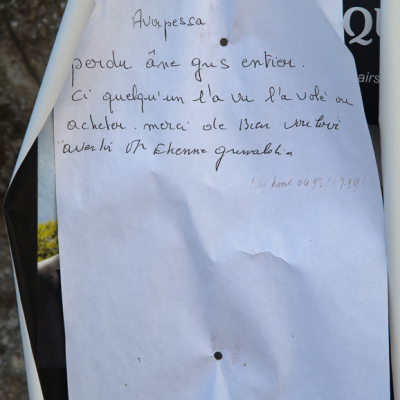 Avapessa
perdu âne gris entier.
ci quelqu'un l'a vu l'a volé ou
acheter. merci de Bien vouloir
avertir Mr Etienne
QU
airs